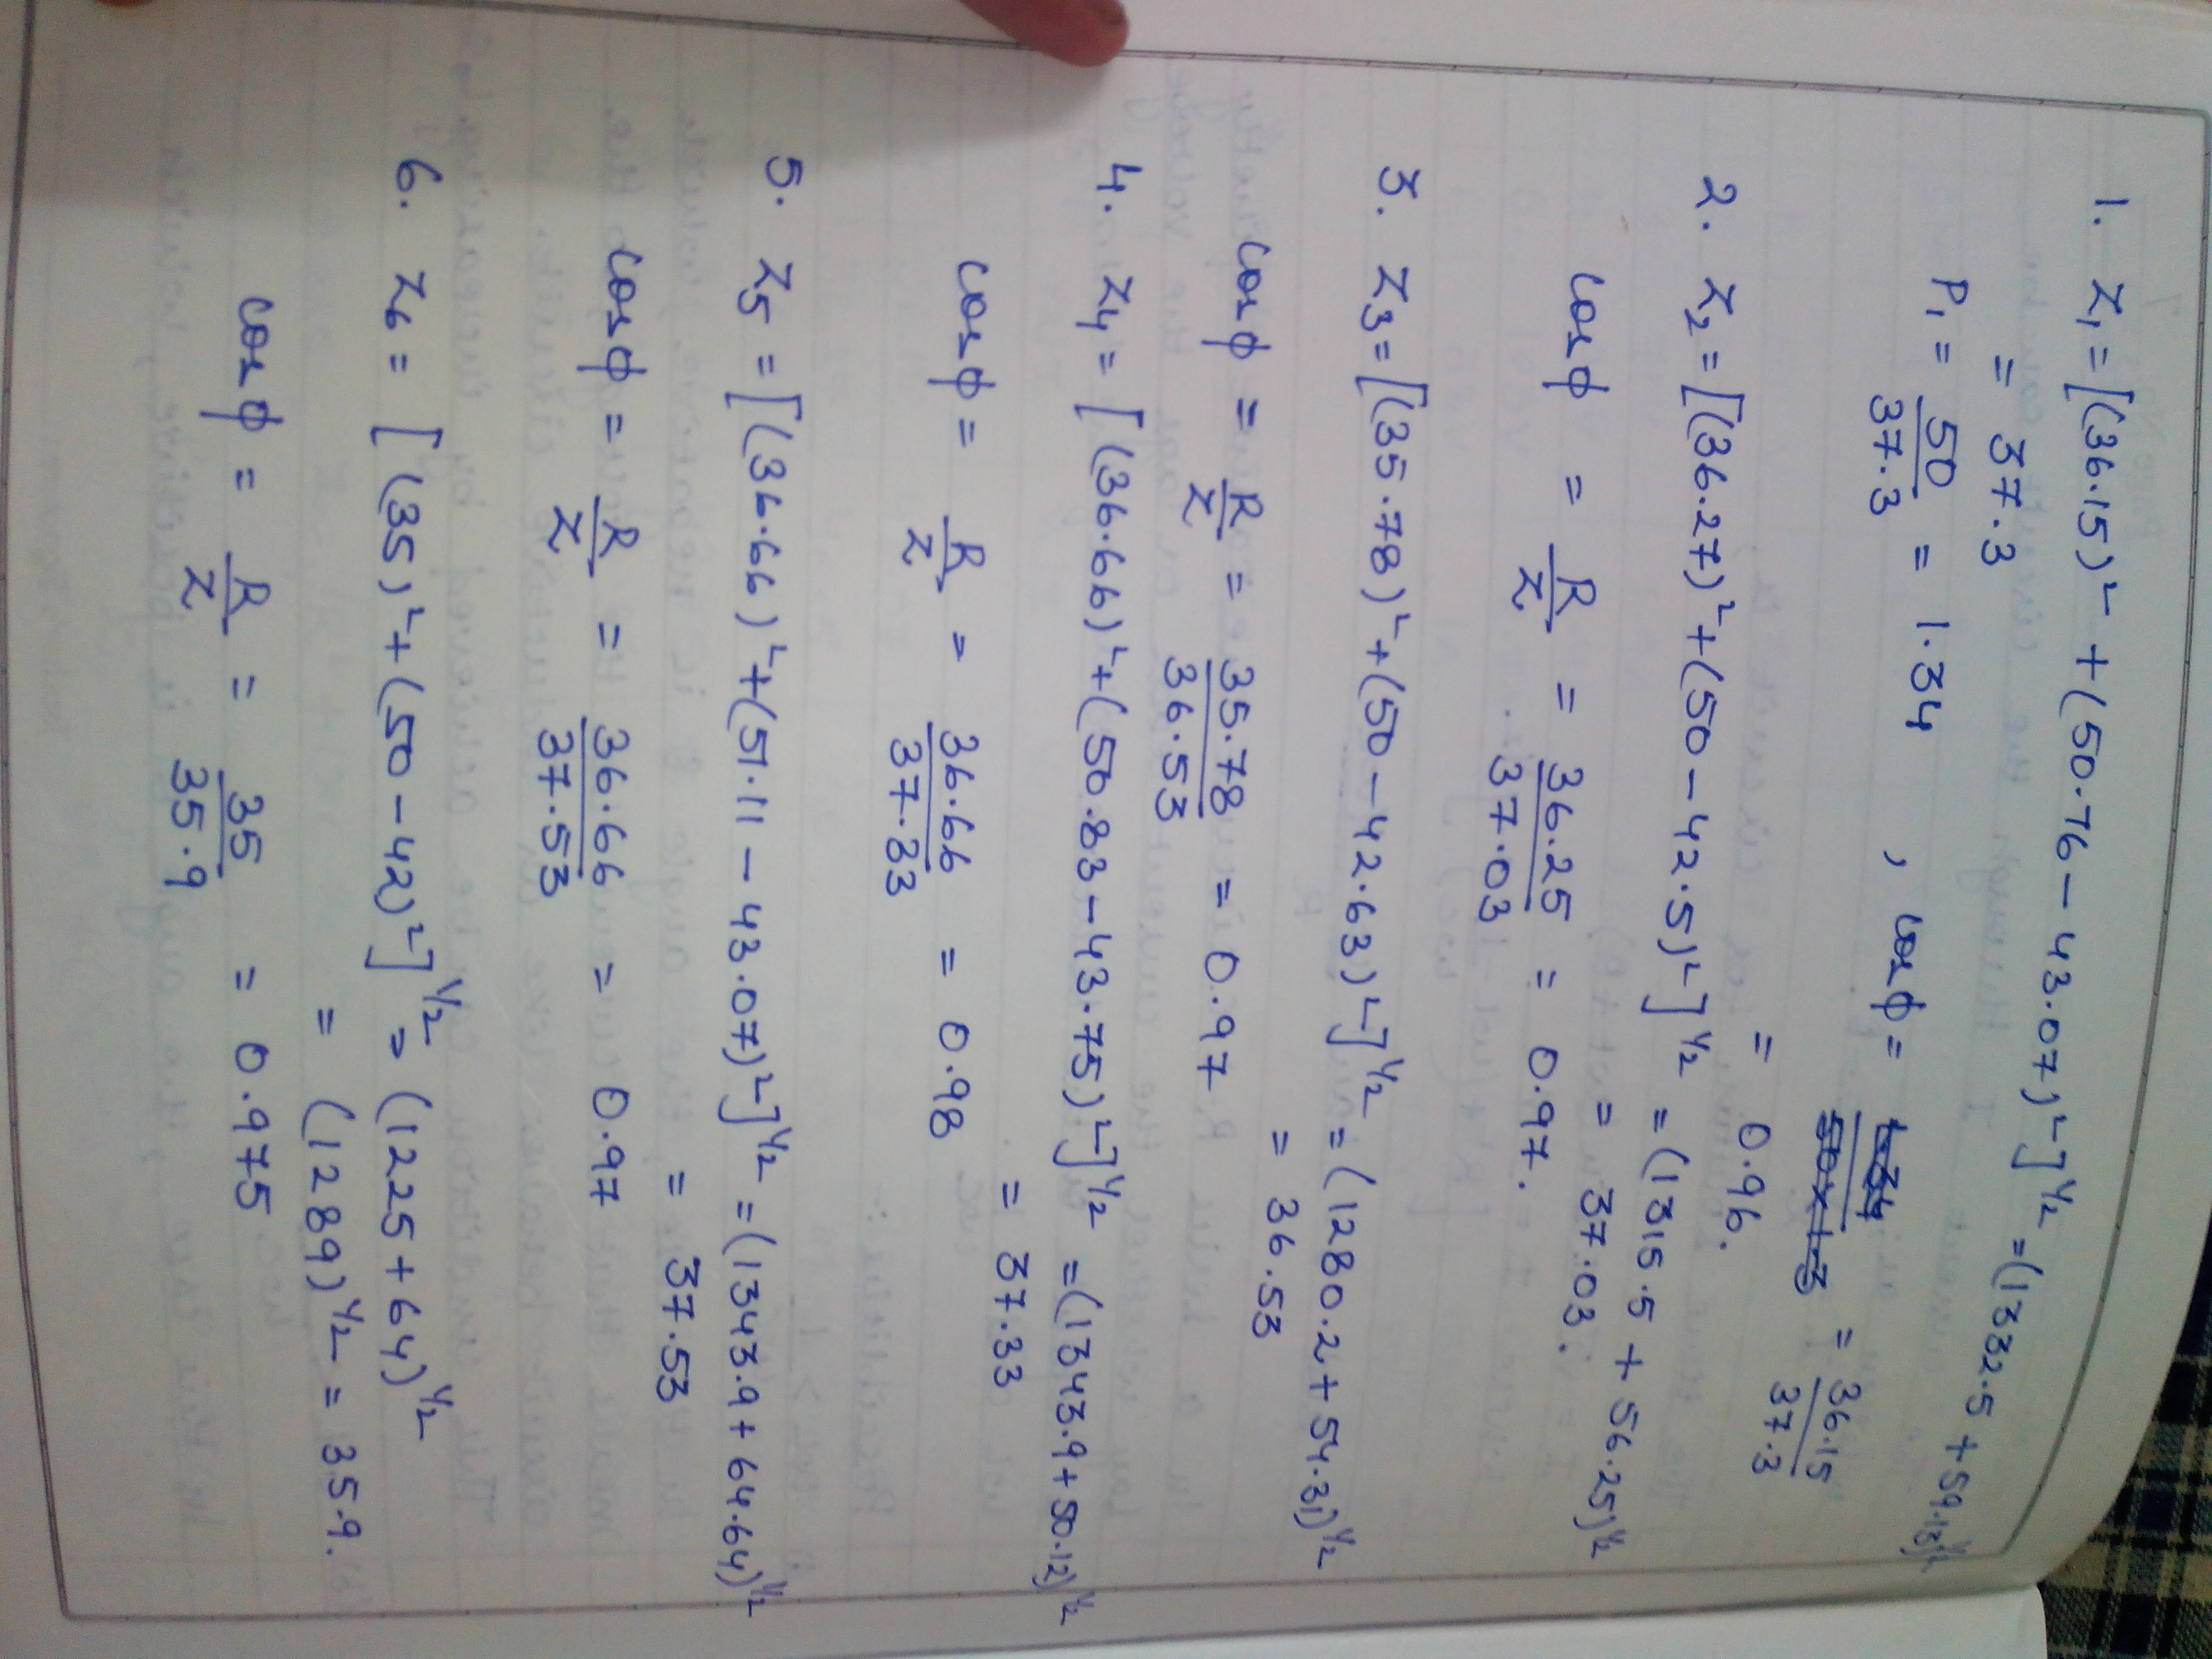 1. Z1 = [(36.15)² + (50.76 – 43.07)²]^1/2 = (1332.5 + 59.13)^1/2
= 37.3
P1 = 50/37.3 = 1.34 , cosφ = = 36.15/37.3
= 0.96.
2. Z2 = [(36.27)² + (50 – 42.5)²]^1/2 = (1315.5 + 56.25)^1/2
= 37.03.
cosφ = R/Z = 36.25/37.03 = 0.97.
3. Z3 = [(35.78)² + (50 – 42.63)²]^1/2 = (1280.2 + 54.31)^1/2
= 36.53
cosφ = R/Z = 35.78/36.53 = 0.97
4. Z4 = [(36.66)² + (50.83 – 43.75)²]^1/2 = (1343.9 + 50.12)^1/2
= 37.33
cosφ = R/Z = 36.66/37.33 = 0.98
5. Z5 = [(36.66)² + (51.11 – 43.07)²]^1/2 = (1343.9 + 64.64)^1/2
= 37.53
cosφ = R/Z = 36.66/37.53 = 0.97
6. Z6 = [(35)² + (50 – 42)²]^1/2 = (1225 + 64)^1/2
= (1289)^1/2 = 35.9.
cosφ = R/Z = 35/35.9 = 0.975